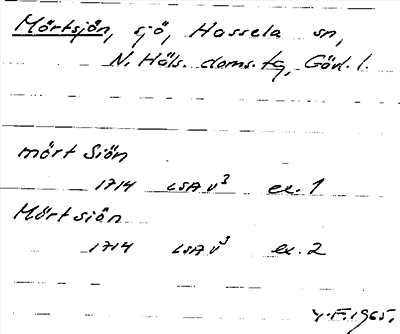 Mörtsjön, sjö, Hassela sn,
N. Häls. doms. tg, Gävl. l.
mört Siön
1714 LSA V³ ex. 1
Mört siön
1714 LSA V³ ex. 2
Y.F. 1965.